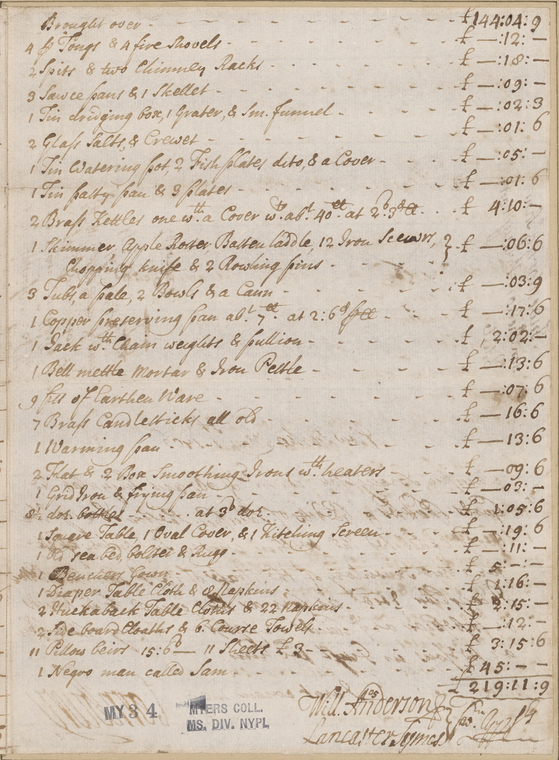 Brought over - £144:04:9
4 pr Tongs & 4 fire shovels - £ —:12:—
2 Spits & two Chimney Racks - £ —:18:—
3 Sawce pans & 1 Skellet - £ —:09:—
1 Tin dridging box, 1 Grater, & Sm. funnel - £ —:02:3
2 Glass Salts, & Crewet - £ —:01:6
1 Tin Watering pot, 2 Fish plates dito, & a Cover - £ —:05:—
1 Tin patty pan & 3 plates - £ —:01:6
2 Brass Kettles one wth a Cover wt abt 40 at £ 4:10:—
1 Skimmer, Apple Roster, Basten laddle, 12 Iron Scewrs, } £ —:06:6
Chopping knife & 2 Rowling pins -
3 Tubs, a pale, 2 Bowls & a Cann - £ —:03:9
1 Copper preserving pan abt 7 at 2:6d £ —:17:6
1 Jack wth Chain weights & pullion - £ 2:02:—
1 Bell mettle Mortar & Iron Pestle - £ —:13:6
9 ps of Earthen Ware - £ —:07:6
7 Brass Candlesticks all old - £ —:16:6
1 Warming pan - £ —:13:6
2 Flat & 2 Box Smoothing Irons wth heaters - £ —:09:6
1 Grid Iron & frying pan - £ —:03:—
doz. bottles at 3d doz. £ 1:05:6
1 Square Table, 1 Oval Cover, & 1 Kitching Screen - £ —:19:6
1 bolster & Rugg - £ —:11:—
1 Gown - £ 5:—:—
1 Diaper Table Cloth & Napkins - £ 1:16:—
2 Huckaback Table Cloths & 22 Napkins - £ 2:15:—
2 Side board Cloaths & 6 Course Towels - £ —:12:—
11 Pillow beirs 15:6d — 11 Sheets £3 - £ 3:15:6
1 Negro man called Sam - £ 45:—:—
£ 219:11:9
Will. Anderson
Lancaster Symes
MY 3 4
MYERS COLL.
MS. DIV. NYPL